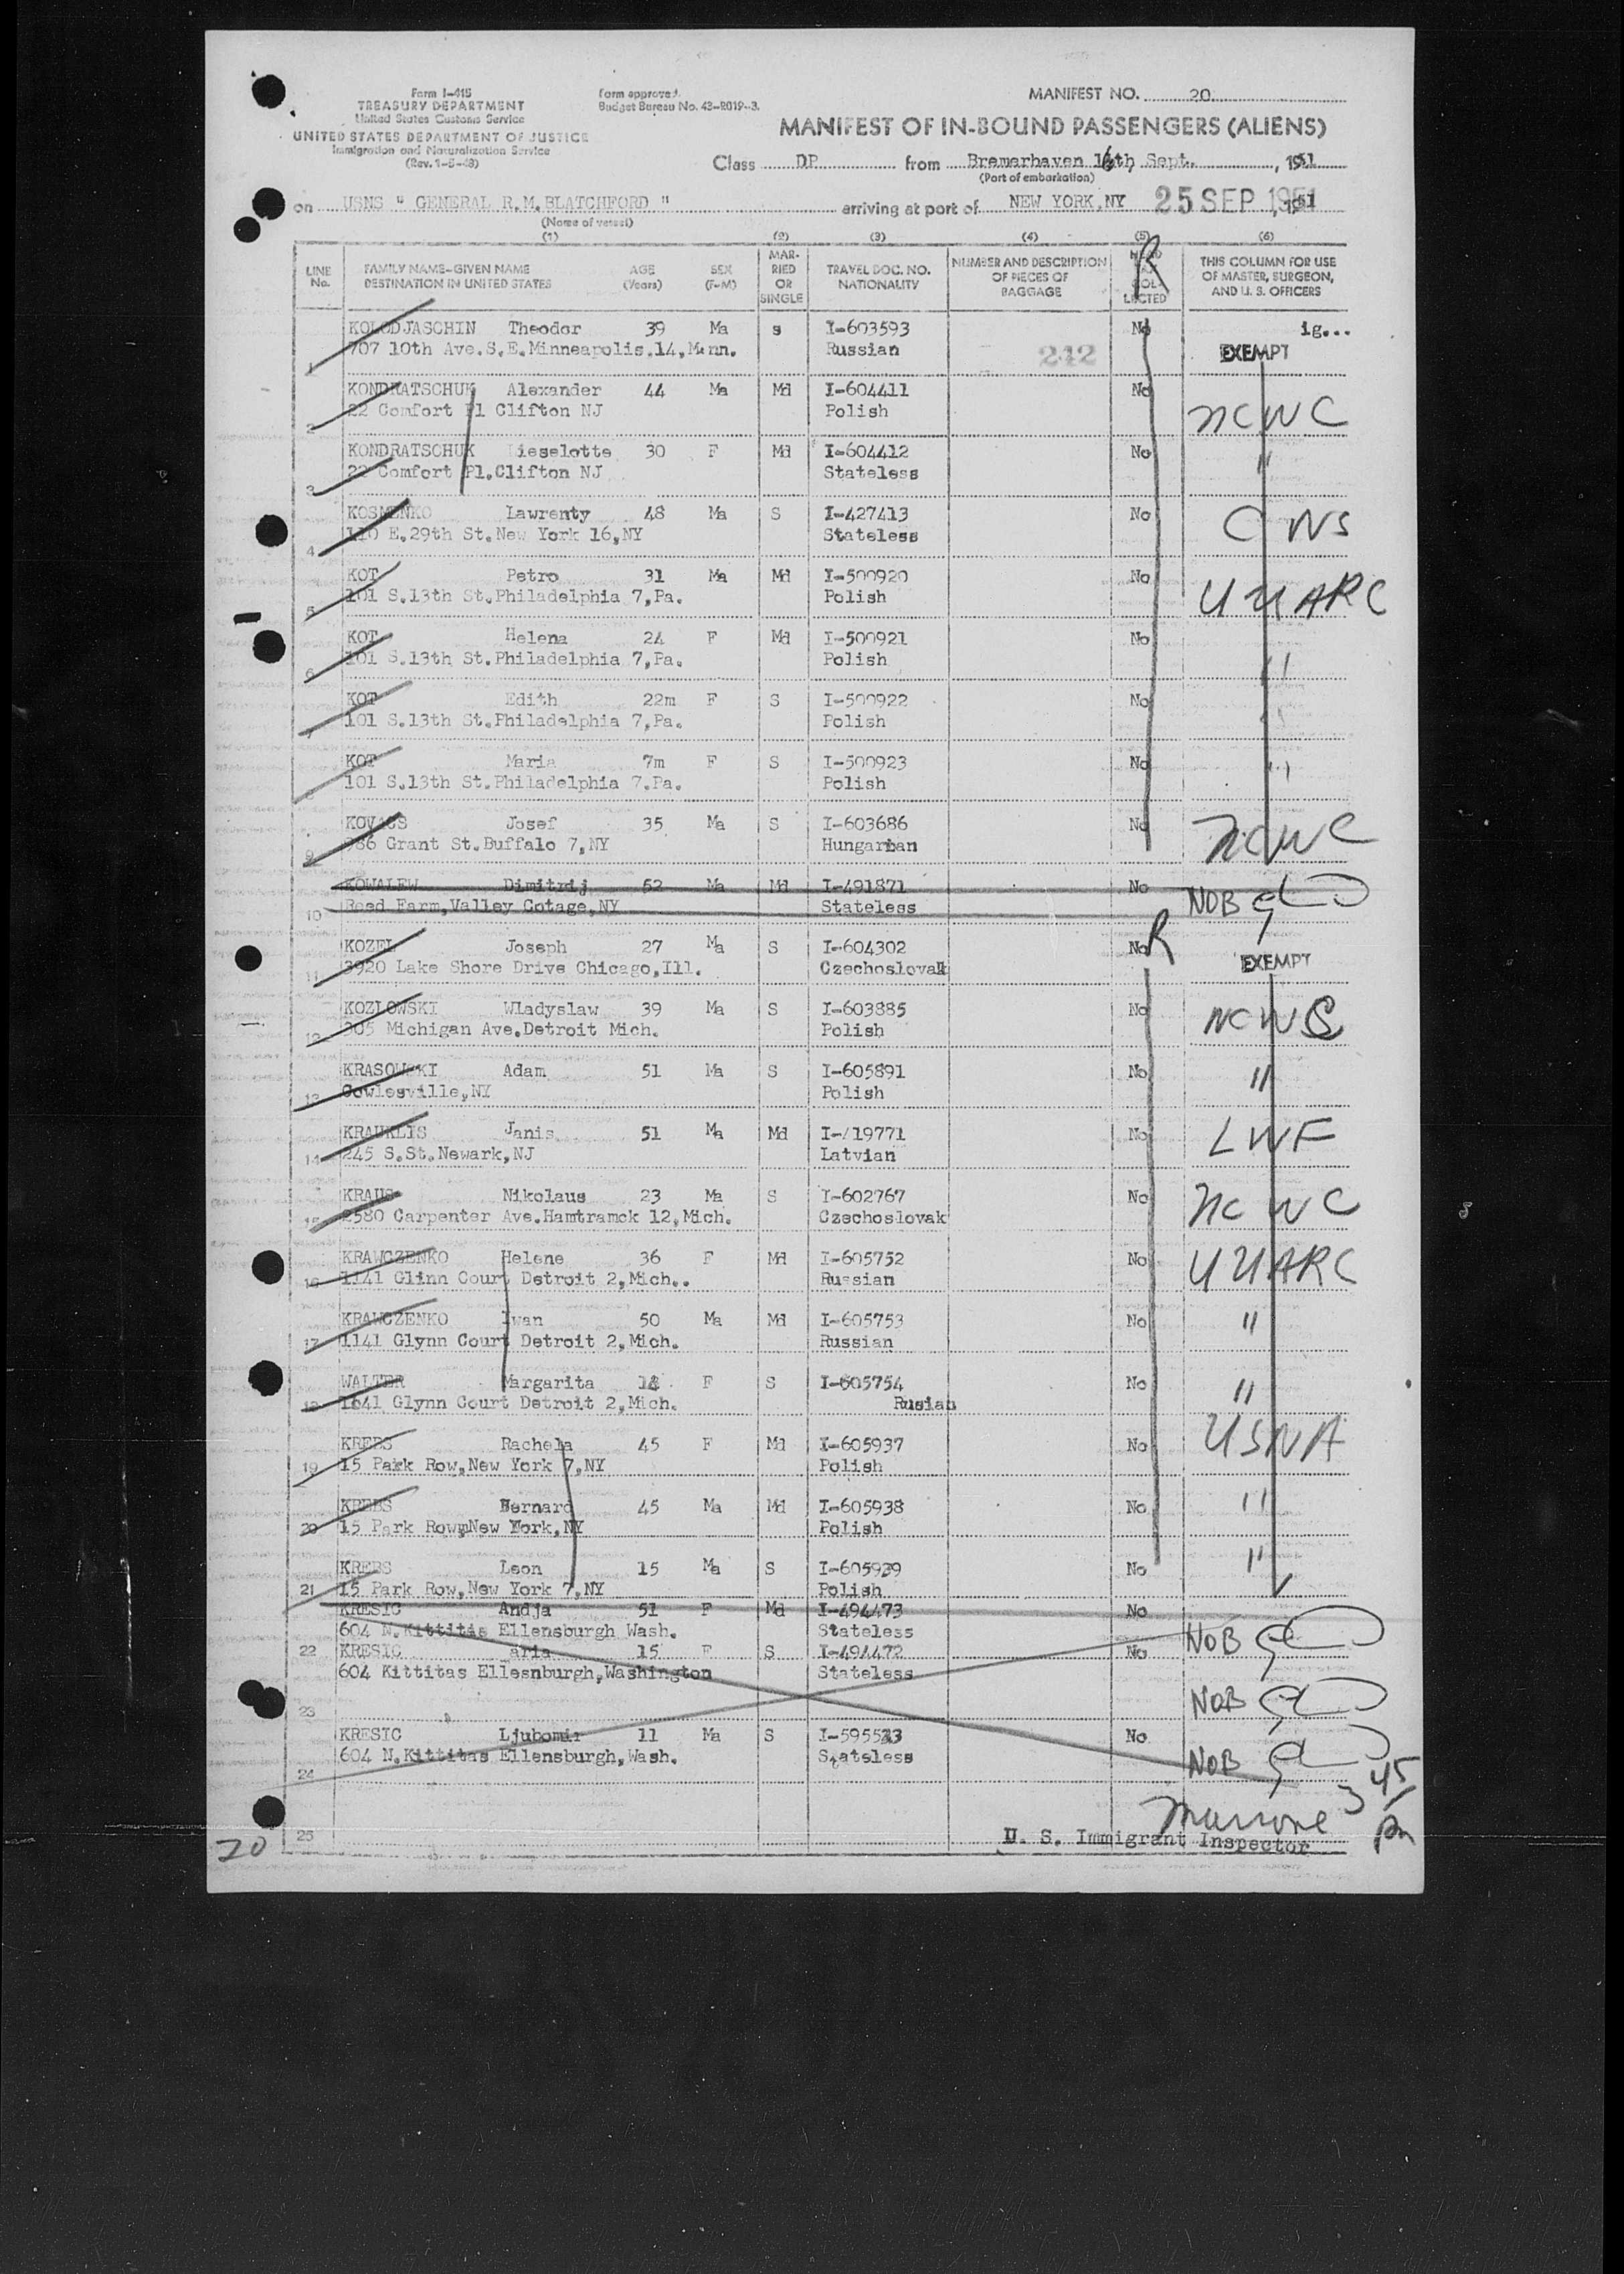 Form I-415
TREASURY DEPARTMENT
United States Customs Service
UNITED STATES DEPARTMENT OF JUSTICE
Immigration and Naturalization Service
(Rev. 1-5-48)
Form approved.
Budget Bureau No. 43-R019-3.
MANIFEST NO. 20
MANIFEST OF IN-BOUND PASSENGERS (ALIENS)
Class DP from Bremerhaven 16th Sept. , 1951
(Port of embarkation)
on USNS " GENERAL R.M.BLATCHFORD " arriving at port of NEW YORK,NY 25 SEP 1951
(Name of vessel)
(1) (2) (3) (4) (5) (6)
LINE No. FAMILY NAME-GIVEN NAME DESTINATION IN UNITED STATES AGE (Years) SEX (F-M) MARRIED OR SINGLE TRAVEL DOC. NO. NATIONALITY NUMBER AND DESCRIPTION OF PIECES OF BAGGAGE R THIS COLUMN FOR USE OF MASTER, SURGEON, AND U. S. OFFICERS
KOLODJASCHIN Theodor 39 Ma s I-603593 No ig...
1 707 10th Ave.S.E.Minneapolis.14,Minn. Russian 242 EXEMPT
KONDRATSCHUK Alexander 44 Ma Md I-604411 No NCWC
2 22 Comfort Pl Clifton NJ Polish
KONDRATSCHUK Lieselotte 30 F Md I-604412 No "
3 22 Comfort Pl.Clifton NJ Stateless
KOSMENKO Lawrenty 48 Ma S I-427413 No CWS
4 110 E.29th St.New York 16,NY Stateless
KOT Petro 31 Ma Md I-500920 No UUARC
5 101 S.13th St.Philadelphia 7,Pa. Polish
KOT Helena 24 F Md I-500921 No "
6 101 S.13th St.Philadelphia 7,Pa. Polish
KOT Edith 22m F S I-500922 No "
7 101 S.13th St.Philadelphia 7,Pa. Polish
KOT Maria 7m F S I-500923 No "
8 101 S.13th St.Philadelphia 7.Pa. Polish
KOVACS Josef 35 Ma S I-603686 No NCWC
9 986 Grant St.Buffalo 7,NY Hungarian
KOWALEW Dimitrij 52 Ma Md I-491871 No NOB
10 Reed Farm,Valley Cotage,NY Stateless
KOZEL Joseph 27 Ma S I-604302 No R
11 3920 Lake Shore Drive Chicago,Ill. Czechoslovak EXEMPT
KOZLOWSKI Wladyslaw 39 Ma S I-603885 No NCWC
12 305 Michigan Ave.Detroit Mich. Polish
KRASOWSKI Adam 51 Ma S I-605891 No "
13 Cowlesville,NY Polish
KRAUKLIS Janis 51 Ma Md I-419771 No LWF
14 245 S.St.Newark,NJ Latvian
KRAUS Nikolaus 23 Ma S I-602767 No NCWC
15 2580 Carpenter Ave.Hamtramck 12,Mich. Czechoslovak
KRAWCZENKO Helene 36 F Md I-605752 No UUARC
16 1141 Glinn Court Detroit 2,Mich.. Russian
KRAWCZENKO Iwan 50 Ma Md I-605753 No "
17 1141 Glynn Court Detroit 2,Mich. Russian
WALTER Margarita 14 F S I-605754 No "
18 1641 Glynn Court Detroit 2,Mich. Rusian
KREBS Rachela 45 F Md I-605937 No USNA
19 15 Park Row,New York 7,NY Polish
KREBS Bernard 45 Ma Md I-605938 No "
20 15 Park Row,New York,NY Polish
KREBS Leon 15 Ma S I-605939 No "
21 15 Park Row,New York 7,NY Polish
KRESIC Andja 51 F Md I-494473 No
604 N.Kittitas Ellensburgh Wash. Stateless NOB
22 KRESIC aria 15 F S I-494472 No
604 Kittitas Ellesnburgh,Washington Stateless
23 NOB
KRESIC Ljubomir 11 Ma S I-595533 No
604 N.Kittitas Ellensburgh,Wash. Stateless NOB
24
3 45 pm
25 U. S. Immigrant Inspector
20